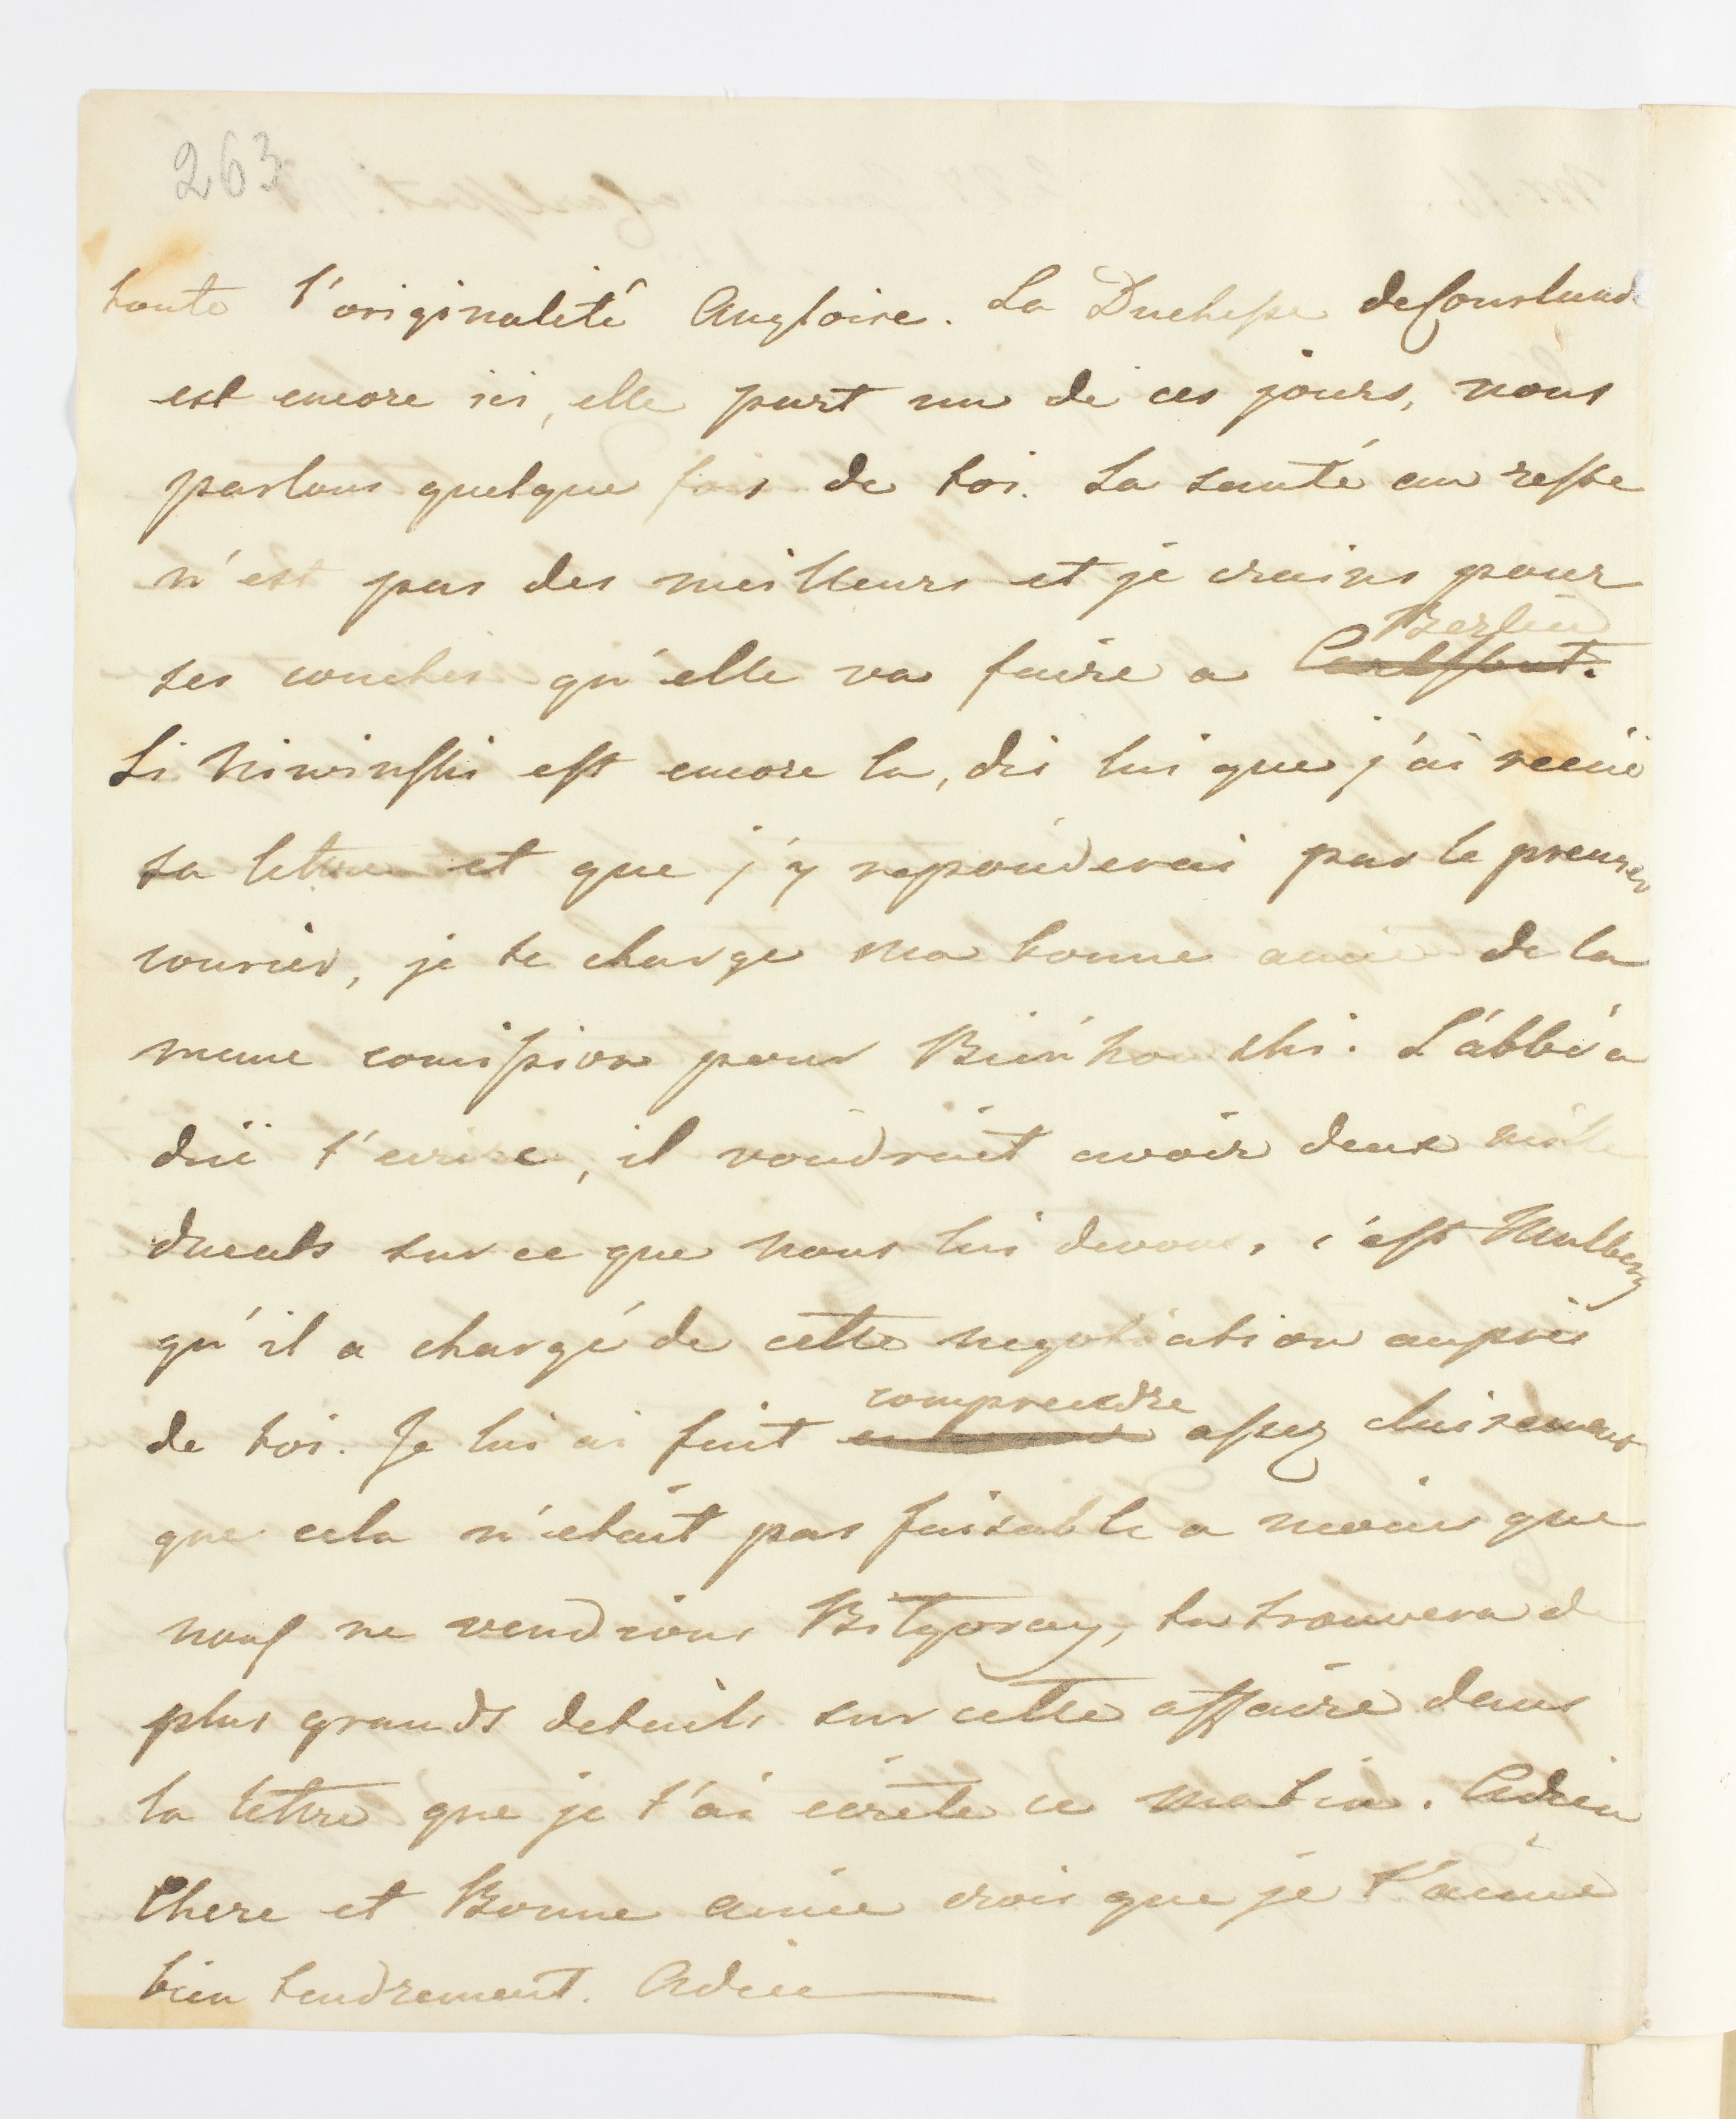 263
toute l'originalité Angloise. La Duchesse de Courlande
est encore ici, elle part un de ces jours, nous
parlons quelque fois de toi. Sa santé au reste
n'est pas des meilleurs et je crains pour
ses couches qu'elle va faire a Carlsbat. Berlin
Si Niwinski est encore la, dis lui que j'ai recüe
sa lettre et que j'y reponderai par le premier
courier, je te charge ma bonne amie de la
meme comission pour Bienkowski. L'abbé a
düe t'ecrire, il voudroit avoir deux mille
ducats sur ce que nous lui devons, c'est Malberg
qu'il a chargé de cette negotiation auprés
de toi. Je lui ai fait comprendre assez clairement
que cela n'etoit pas faisable a moins que
nous ne vendrions Bilgoray, tu trouvera de
plus grands details sur cette affaire dans
la lettre que je t'ai ecrite ce matin. Adieu
Chere et Bonne amie crois que je t'aime
bien tendrement. Adieu